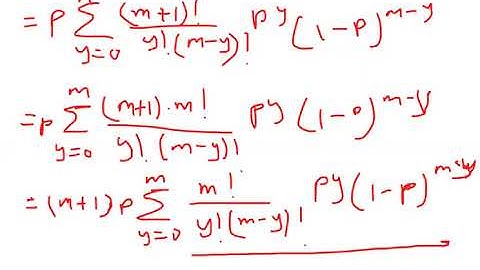 = p ∑_{y=0}^{m} (m+1)! / y!·(m-y)! p^y (1-p)^{m-y}
= p ∑_{y=0}^{m} (m+1)·m! / y!·(m-y)! p^y (1-p)^{m-y}
= (m+1) p ∑_{y=0}^{m} m! / y!(m-y)! p^y (1-p)^{m-y}